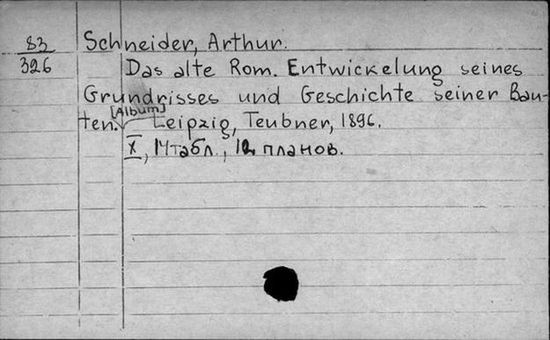 83
326
Schneider, Arthur.
Das alte Rom. Entwickelung seines
Grundrisses und Geschichte seiner Bau-
ten. [Album] Leipzig, Teubner, 1896.
X, 14 табл., 12 планов.